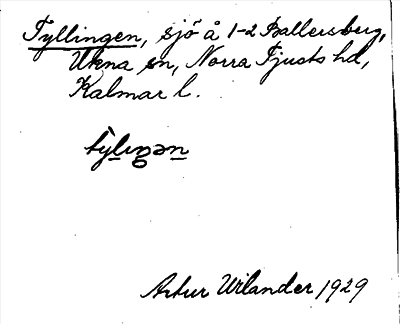 Tyllingen, sjö å 1-2 Ballersberg,
Ukna sn, Norra Tjusts hd,
Kalmar l.
Artur Wilander 1929